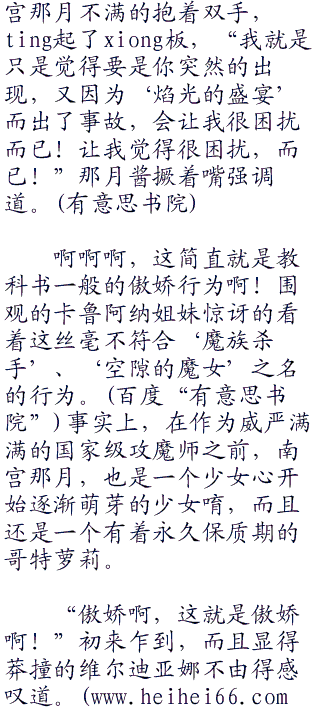 宫那月不满的抱着双手，
ting起了xiong板，“我就是
只是觉得要是你突然的出
现，又因为‘焰光的盛宴’
而出了事故，会让我很困扰
而已！让我觉得很困扰，而
已！”那月酱撅着嘴强调
道。(有意思书院)
啊啊啊，这简直就是教
科书一般的傲娇行为啊！围
观的卡鲁阿纳姐妹惊讶的看
着这丝毫不符合‘魔族杀
手’、‘空隙的魔女’之名
的行为。(百度“有意思书
院”)事实上，在作为威严满
满的国家级攻魔师之前，南
宫那月，也是一个少女心开
始逐渐萌芽的少女唷，而且
还是一个有着永久保质期的
哥特萝莉。
“傲娇啊，这就是傲娇
啊！”初来乍到，而且显得
莽撞的维尔迪亚娜不由得感
叹道。(www.heihei66.com